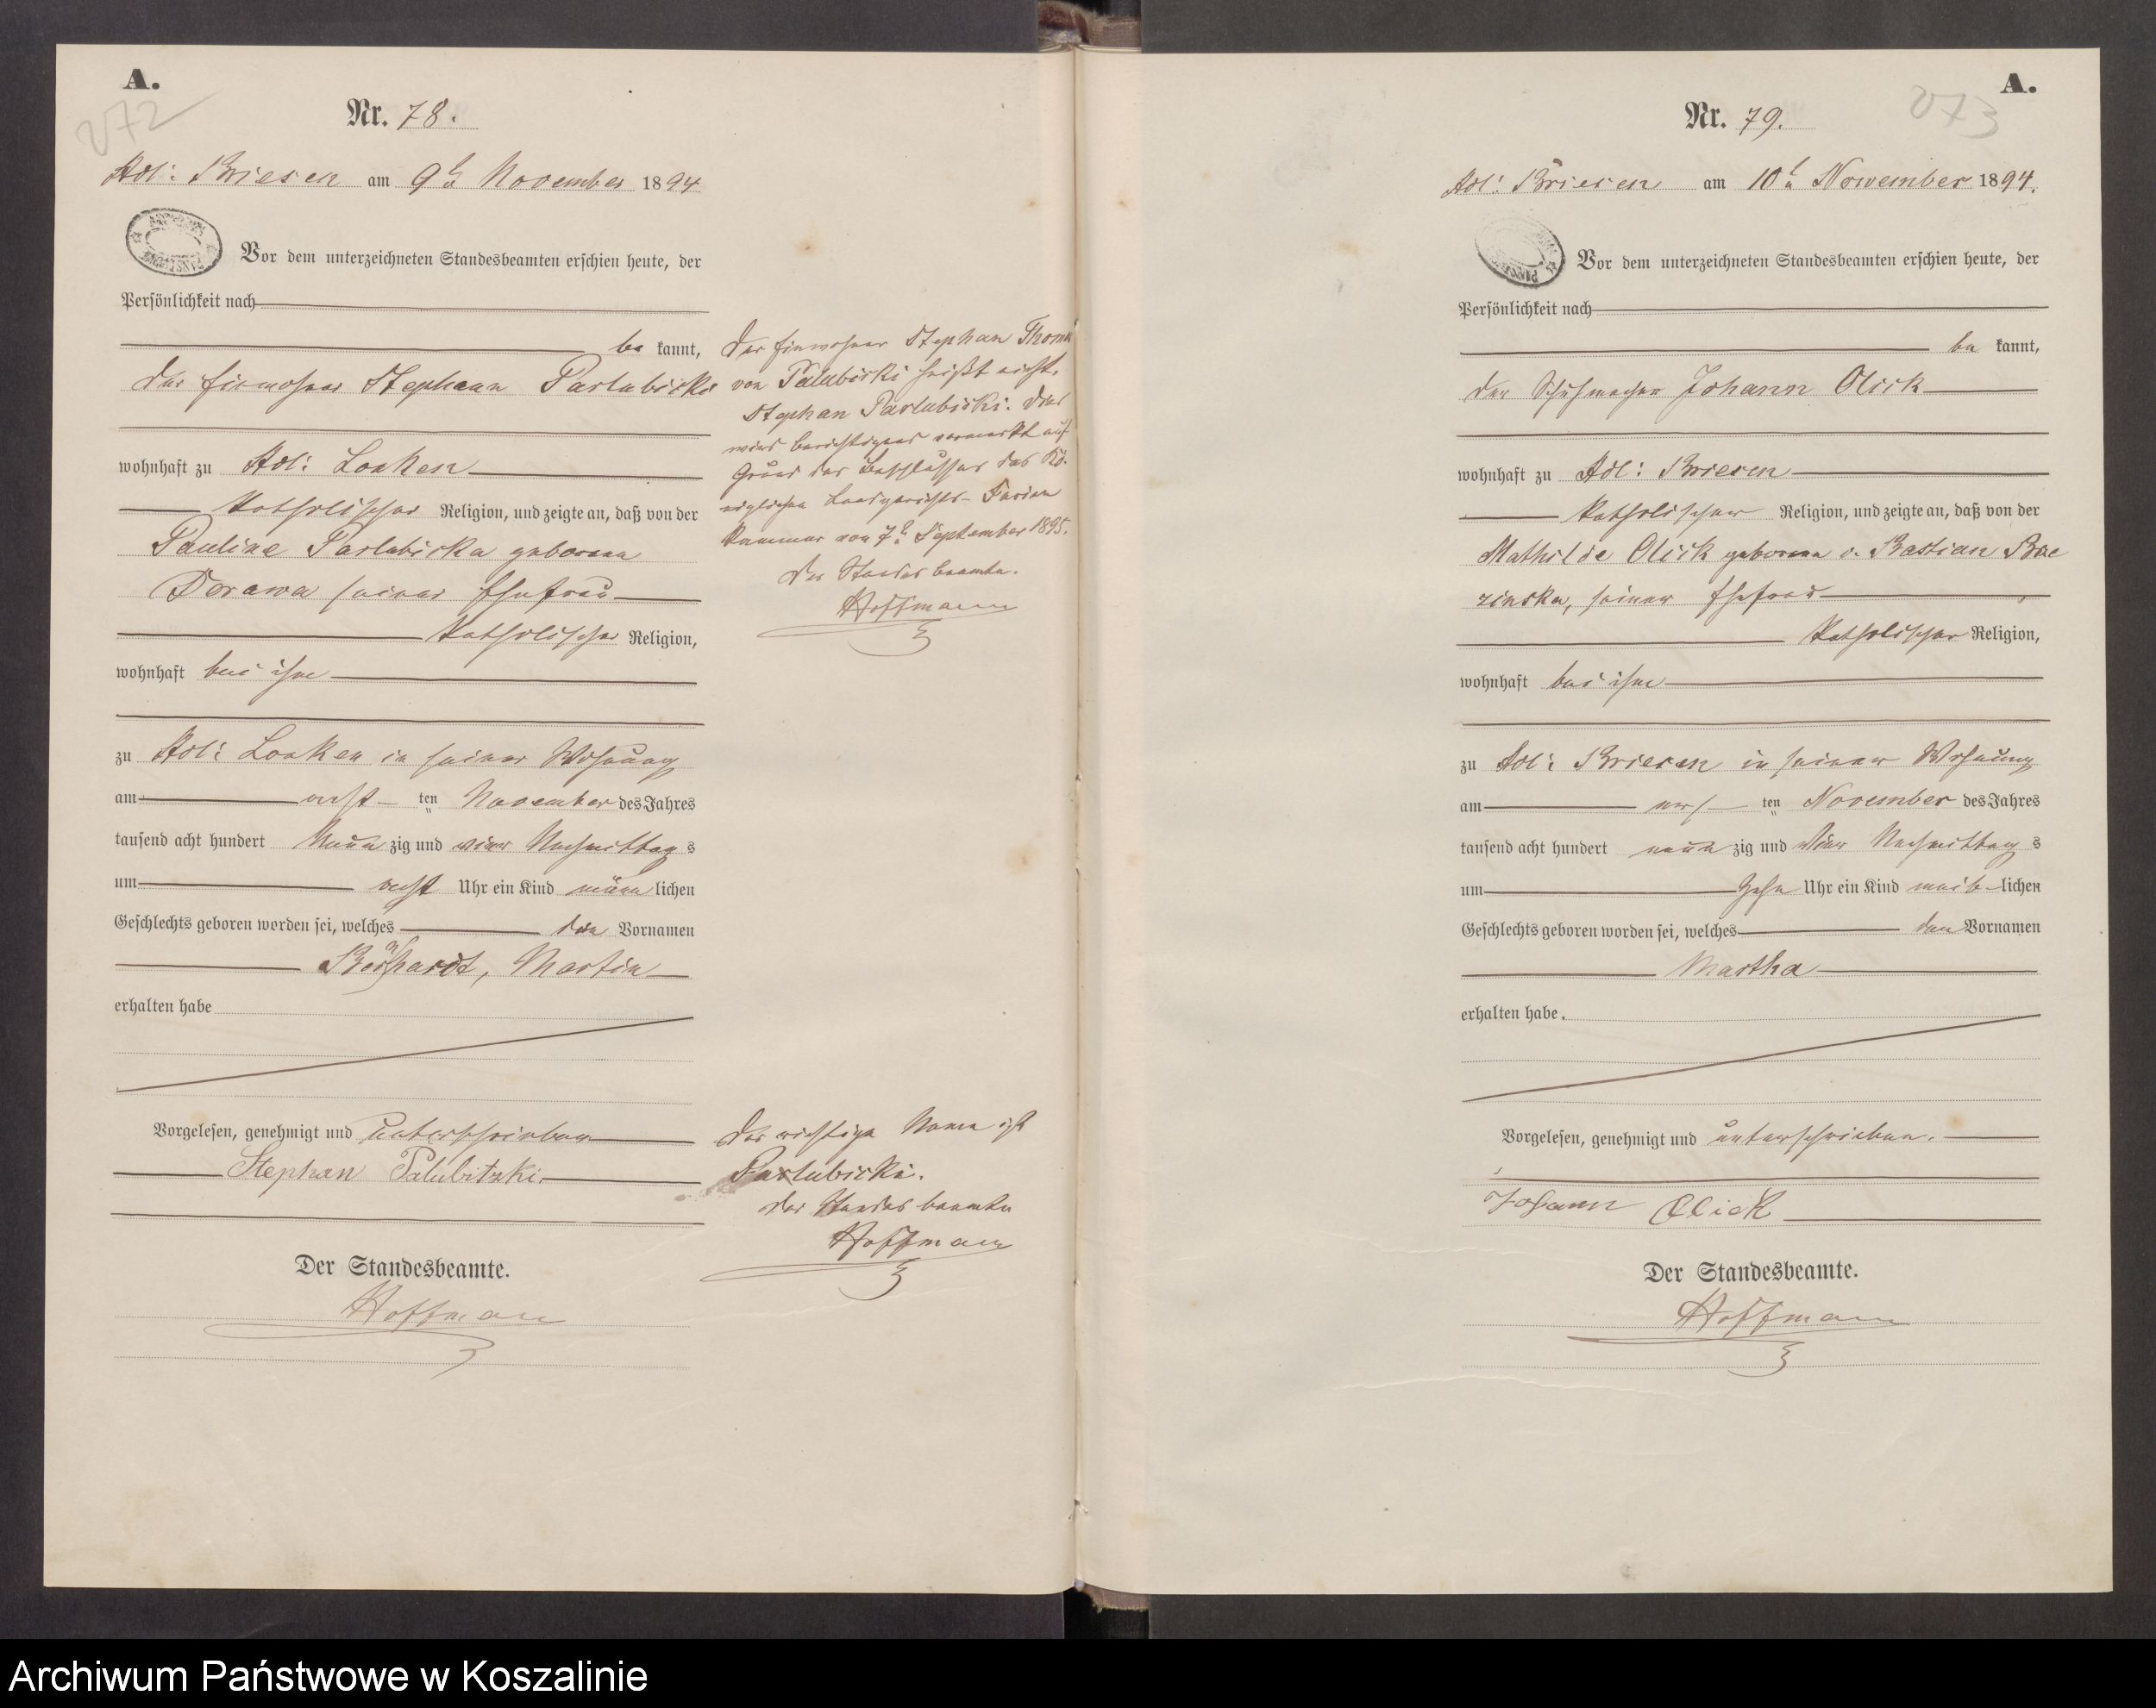 A.
272
Nr. 78.
Adl: Briesen am 9t November 1894
Vor dem unterzeichneten Standesbeamten erschien heute, der
Persönlichkeit nach
be kannt,
der Einwohner Stephan Parlubicki
wohnhaft zu Adl: Loaken
katholischer Religion, und zeigte an, daß von der
Pauline Parlubicka geborene
Derawa seiner Ehefrau
katholischer Religion,
wohnhaft bei ihm
zu Adl: Loaken in seiner Wohnung
am acht ten November des Jahres
tausend acht hundert Neun zig und vier Nachmittag s
um acht Uhr ein Kind männ lichen
Geschlechts geboren worden sei, welches den Vornamen
Bernhardt, Martin
erhalten habe
Vorgelesen, genehmigt und unterschrieben
Stephan Palubitzki.
Der Standesbeamte.
Hoffmann
Der Einwohner Stephan Thomas
von Palubicki heißt nicht
Stephan Parlubicki. Dies
wird berichtigend vermerkt auf
Grund des Beschlusses des Kö-
niglichen Landgerichts- Ferien
kammer vom 7t September 1895.
Der Standesbeamte.
Hoffmann
Der richtige Name ist
Parlubicki.
Der Standesbeamte
Hoffmann
A.
273
Nr. 79.
Adl: Briesen am 10t November 1894.
Vor dem unterzeichneten Standesbeamten erschien heute, der
Persönlichkeit nach
be kannt,
der Schuhmacher Johann Olick
wohnhaft zu Adl: Briesen
katholischer Religion, und zeigte an, daß von der
Mathilde Olick geborene v. Bastian Brze
zinska, seiner Ehefrau
katholischer Religion,
wohnhaft bei ihm
zu Adl: Briesen in seiner Wohnung
am ten November des Jahres
tausend acht hundert neun zig und vier Nachmittag s
um Zehn Uhr ein Kind weib lichen
Geschlechts geboren worden sei, welches den Vornamen
Martha
erhalten habe.
Vorgelesen, genehmigt und unterschrieben.
Johann Olick
Der Standesbeamte.
Hoffmann
Archiwum Państwowe w Koszalinie